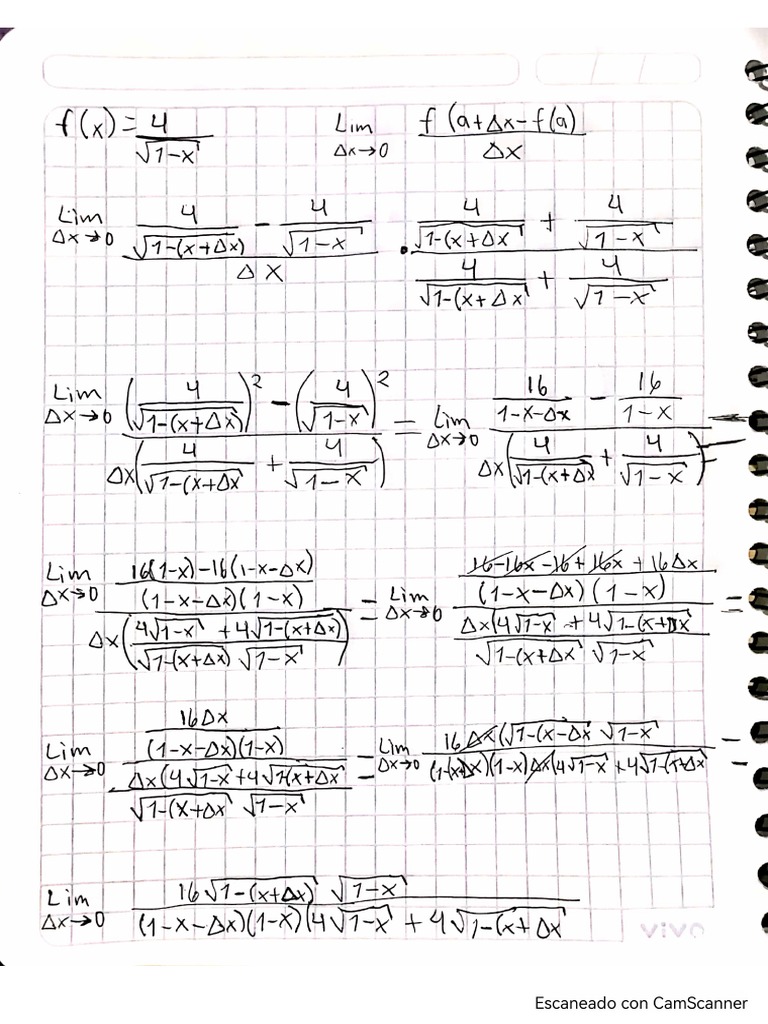 f(x) = 4/√(1-x)    Lim Δx→0 f(a+Δx-f(a)/Δx
Lim Δx→0 (4/√(1-(x+Δx) - 4/√(1-x))/Δx · (4/√(1-(x+Δx + 4/√(1-x))/(4/√(1-(x+Δx + 4/√(1-x))
Lim Δx→0 ((4/√(1-(x+Δx))² - (4/√(1-x))²)/(Δx(4/√(1-(x+Δx + 4/√(1-x))) = Lim Δx→0 (16/(1-x-Δx) - 16/(1-x))/(Δx(4/√(1-(x+Δx) + 4/√(1-x)))
Lim Δx→0 ((16(1-x)-16(1-x-Δx))/((1-x-Δx)(1-x)))/(Δx((4√(1-x) + 4√(1-(x+Δx))/(√(1-(x+Δx) √(1-x)))) = Lim Δx→0 ((16-16x-16+16x+16Δx)/((1-x-Δx)(1-x)))/((Δx(4√(1-x) + 4√(1-(x+Δx)/(√(1-(x+Δx √(1-x))) =
Lim Δx→0 (16Δx/((1-x-Δx)(1-x)))/((Δx(4√(1-x)+4√(1-(x+Δx)/(√(1-(x+Δx √(1-x))) = Lim Δx→0 (16Δx(√(1-(x-Δx √(1-x))/((1-(x+Δx)(1-x)Δx(4√(1-x) + 4√(1-(x+Δx) =
Lim Δx→0 (16√(1-(x+Δx) √(1-x))/((1-x-Δx)(1-x)(4√(1-x) + 4√(1-(x+Δx)
vivo
Escaneado con CamScanner